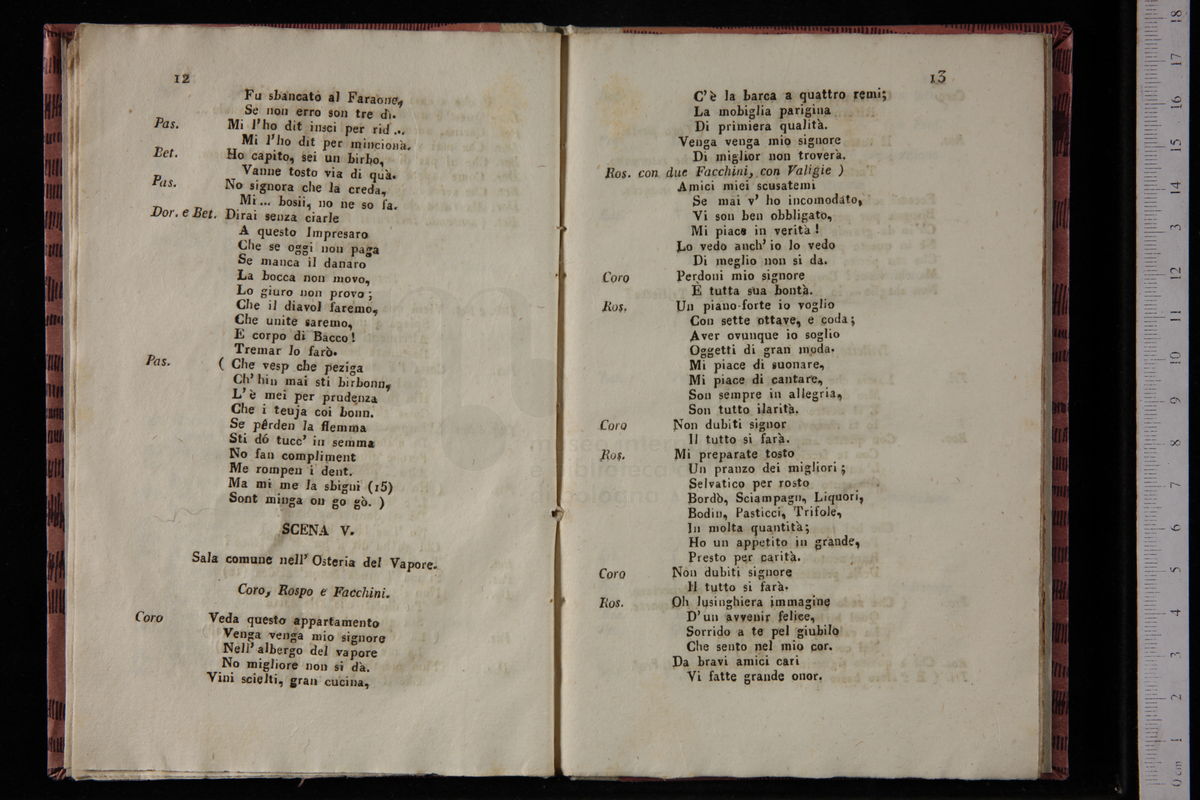 12
Fu sbancato al Faraone,
Se non erro son tre dì.
Pas. Mi l'ho dit insci per rid...
Mi l'ho dit per mincionà.
Bet. Ho capito, sei un birbo,
Vanne tosto via di quà.
Pas. No signora che la creda,
Mi... bosii, no ne so fa.
Dor. e Bet. Dirai senza ciarle
A questo Impresaro
Che se oggi non paga
Se manca il danaro
La bocca non movo,
Lo giuro non provo;
Che il diavol faremo,
Che unite saremo,
E corpo di Bacco!
Tremar lo farò.
Pas. ( Che vesp che peziga
Ch' hin mai sti birbonn,
L' è mei per prudenza
Che i teuja coi bonn.
Se pêrden la flemma
Sti dó tucc' in semma
No fan compliment
Me rompen i dent.
Ma mi me la sbigni (15)
Sont minga on go gò. )
SCENA V.
Sala comune nell' Osteria del Vapore.
Coro, Rospo e Facchini.
Coro Veda questo appartamento
Venga venga mio signore
Nell' albergo del vapore
No migliore non si dà.
Vini scielti, gran cucina,
13
C' è la barca a quattro remi;
La mobiglia parigina
Di primiera qualità.
Venga venga mio signore
Di miglior non troverà.
Ros. con due Facchini, con Valigie )
Amici miei scusatemi
Se mai v' ho incomodato,
Vi son ben obbligato,
Mi piace in verità !
Lo vedo anch' io lo vedo
Di meglio non si da.
Coro Perdoni mio signore
È tutta sua bontà.
Ros. Un piano-forte io voglio
Con sette ottave, e coda;
Aver ovunque io soglio
Oggetti di gran moda.
Mi piace di suonare,
Mi piace di cantare,
Son sempre in allegria,
Son tutto ilarità.
Coro Non dubiti signor
Il tutto si farà.
Ros. Mi preparate tosto
Un pranzo dei migliori ;
Selvatico per rosto
Bordò, Sciampagn, Liquori,
Bodin, Pasticci, Trifole,
In molta quantità;
Ho un appetito in grande,
Presto per carità.
Coro Non dubiti signore
Il tutto si farà.
Ros. Oh lusinghiera immagine
D' un avvenir felice,
Sorrido a te pel giubilo
Che sento nel mio cor.
Da bravi amici cari
Vi fatte grande onor.